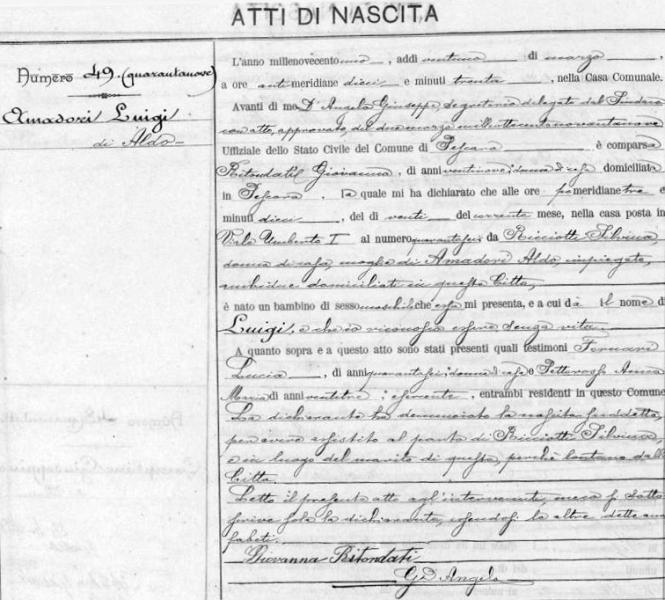 ATTI DI NASCITA
Numero 49. (quarantanove)
Amadori Luigi
di Aldo
L'anno millenovecento uno, addi ventuno di marzo,
a ore antimeridiane dieci e minuti trenta, nella Casa Comunale.
Avanti di me D'Angelo Giuseppe Segretario delegato dal Sindaco
con atto, approvato, del due marzo milleottocentonovantanove
Uffiziale dello Stato Civile del Comune di Pescara è comparsa
Ritondati Giovanna, di anni ventinove; donna di casa domiciliata
in Pescara, la quale mi ha dichiarato che alle ore pomeridiane tre e
minuti dieci, del dì venti del corrente mese, nella casa posta in
Viale Umberto I al numero quarantasei da Ricciotti Silvina,
donna di casa, moglie di Amadori Aldo, impiegato,
ambidue domiciliati in questa Città,
è nato un bambino di sesso maschile che essa mi presenta, e a cui dà il nome di
Luigi, e che io riconosco essere senza vita.
A quanto sopra e a questo atto sono stati presenti quali testimoni Fornari
Lucia, di anni quarantasei; donna di casa e Pettorossi Anna
Maria di anni ventitre; esercente, entrambi residenti in questo Comune
La dichiarante ha denunciato la nascita suddetta,
per avere assistito al parto di Ricciotti Silvina,
e in luogo del marito di questa, perchè lontano dalla
Città.
Letto il presente atto agl'intervenuti, meco si sotto
scrive sola la dichiarante, essendosi le altre dette anal
fabeti.
Giovanna Ritondati
G. D'Angelo